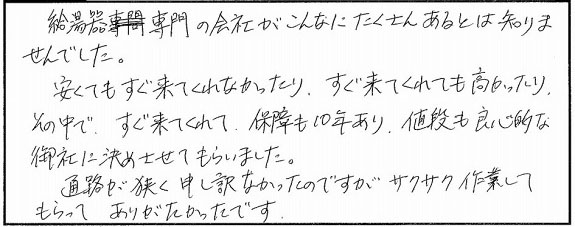 給湯器専門の会社がこんなにたくさんあるとは知りま
せんでした。
安くてもすぐ来てくれなかったり、すぐ来てくれても高かったり、
その中で、すぐ来てくれて、保障も10年あり、値段も良心的な
御社に決めさせてもらいました。
通路が狭く申し訳なかったのですがサクサク作業して
もらってありがたかったです.